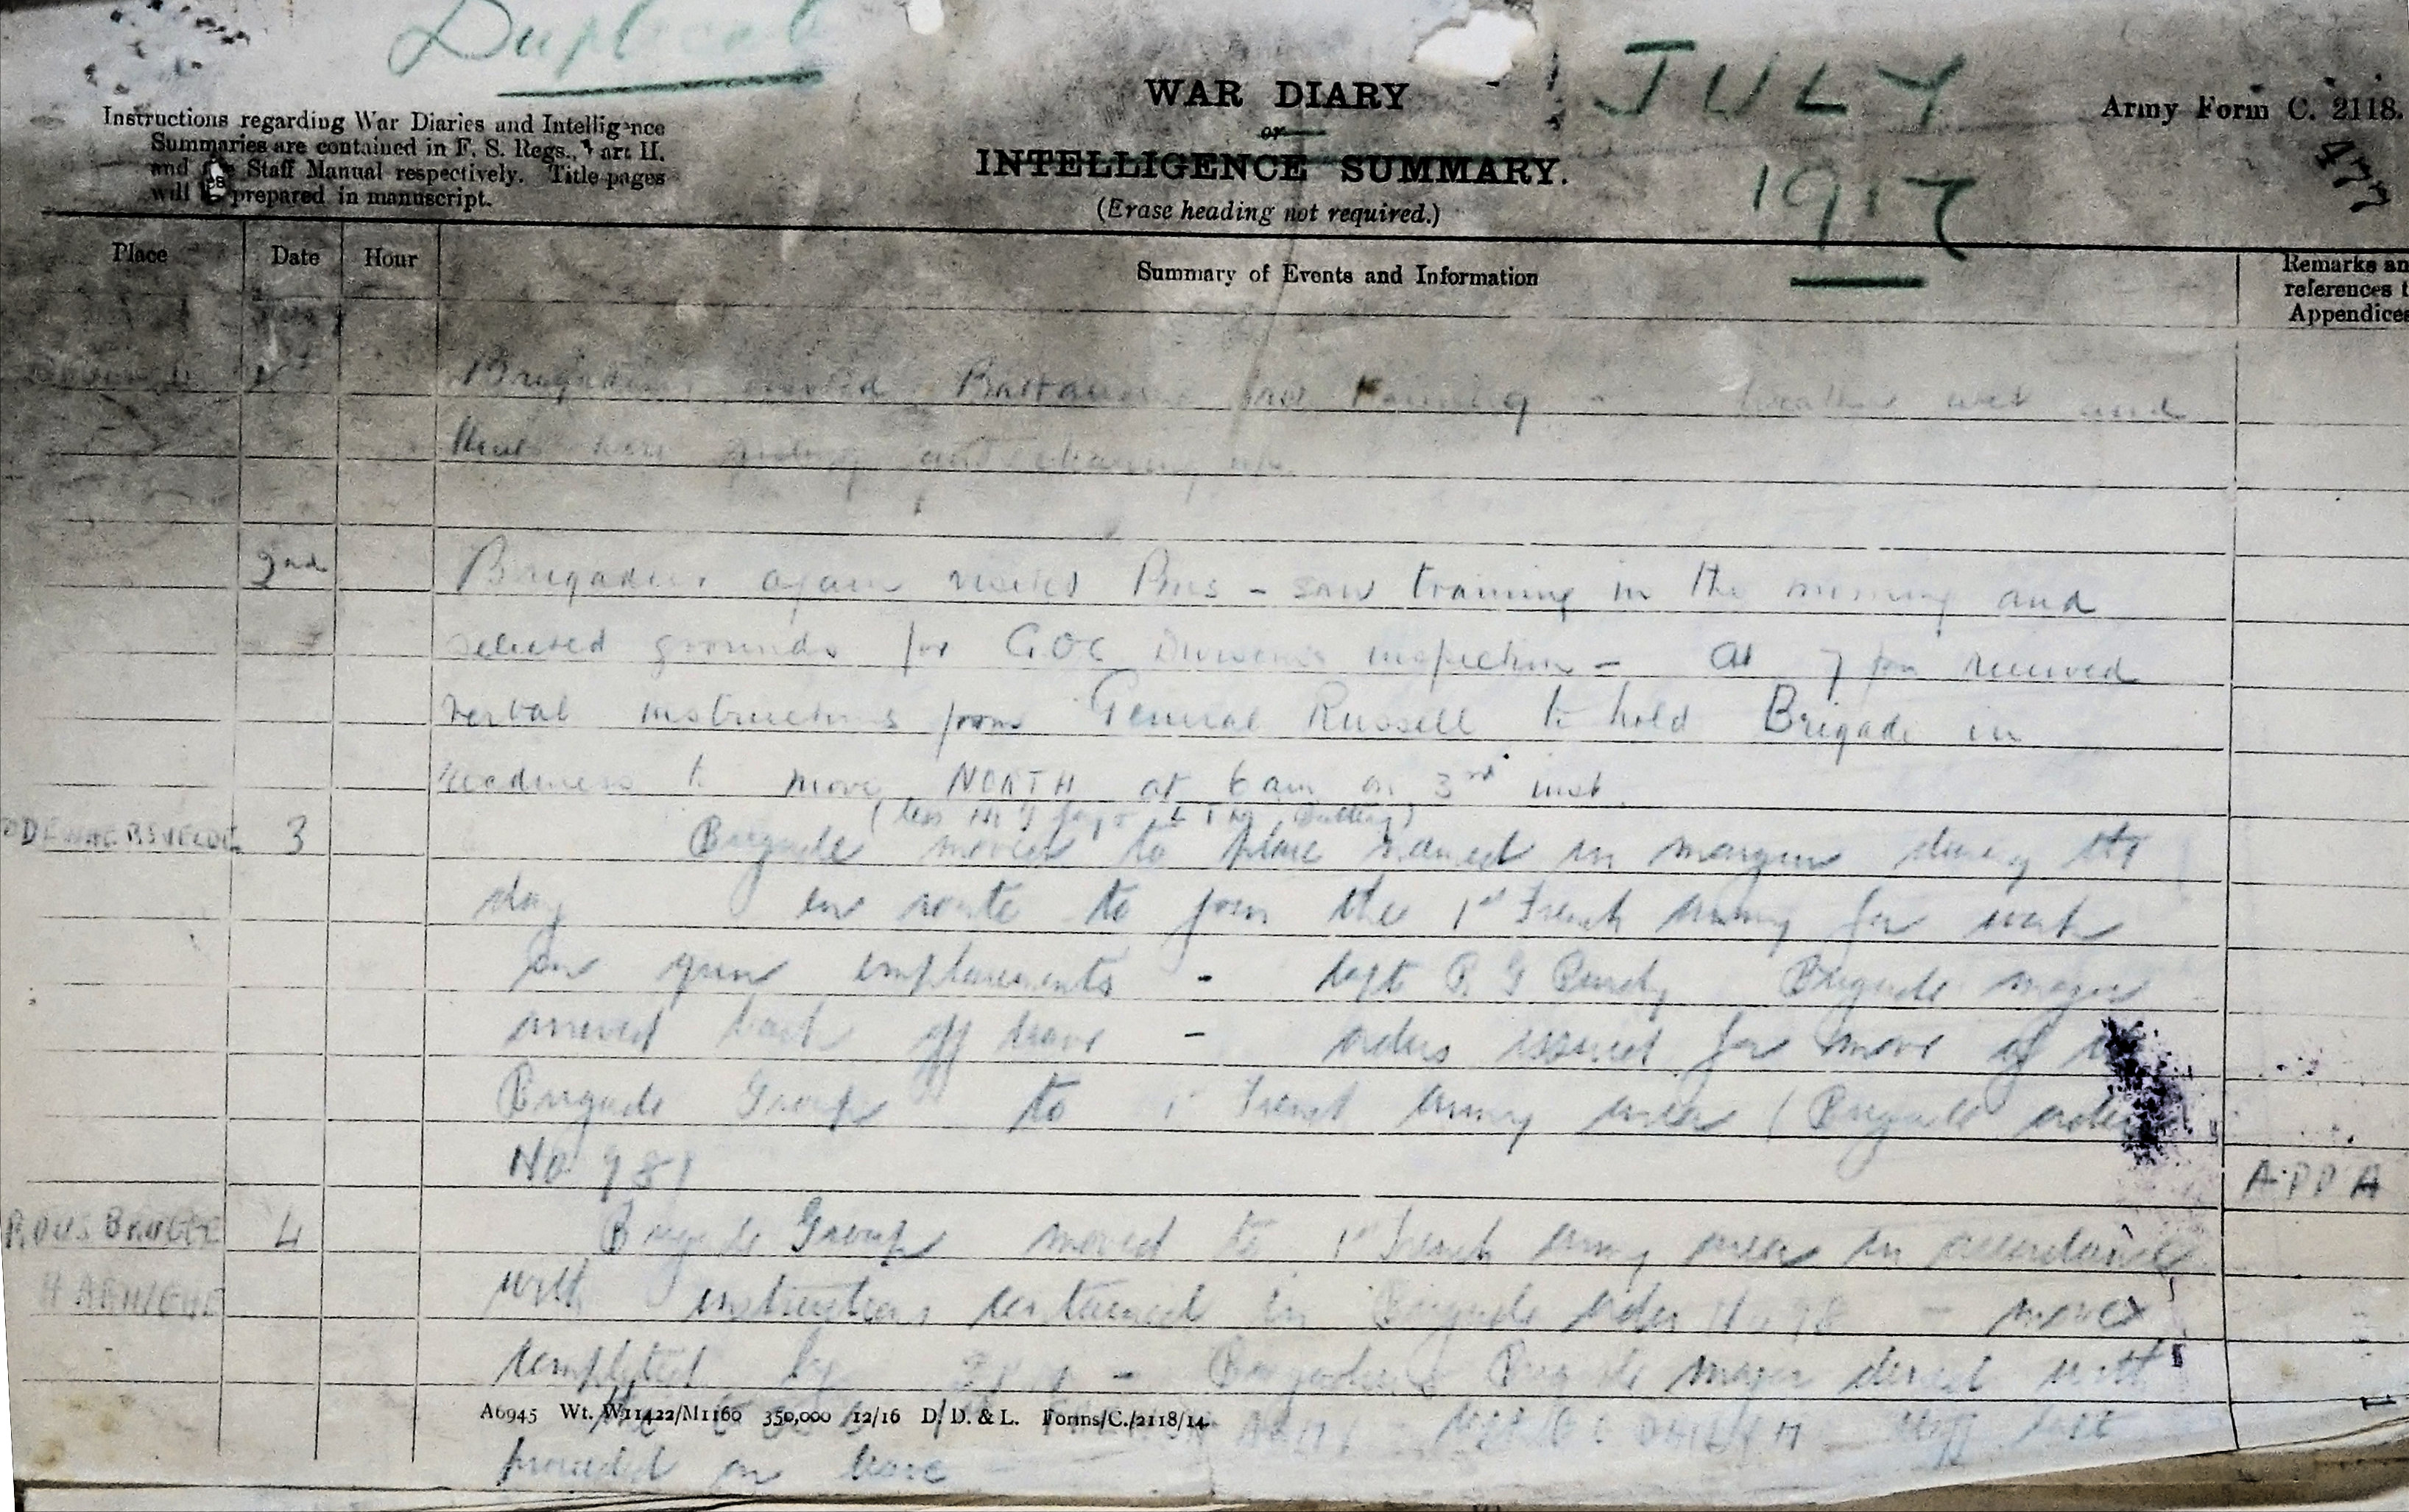 Duplicate
JULY
1917
WAR DIARY
or
INTELLIGENCE SUMMARY.
(Erase heading not required.)
Army Form C. 2118.
477
Instructions regarding War Diaries and Intelligence
Summaries are contained in F. S. Regs., Part II.
and the Staff Manual respectively. Title pages
will be prepared in manuscript.
Place Date Hour Summary of Events and Information Remarks an
references t
Appendices
July
Brigadier visited Battalions saw training - weather wet and
2nd Brigadier again visited Bns - saw training in the morning and
selected grounds for GOC Divisions inspection - At 7 pm received
verbal instructions from General Russell to hold Brigade in
readiness to move NORTH at 6 am on 3rd inst.
(less M G Coy & L T M Battery)
3 Brigade moved to place named in margin during the
day en route to join the 1st French army for work
on gun emplacements - Capt R G Purdy Brigade major
arrived back off leave - orders issued for move of
Brigade Group to 1st French army area (Brigade order
No 98)
APP A
ROUSBRUGGE 4 Brigade Group moved to 1st French army area in accordance
HARINGHE with instructions contained in Brigade order No 98 - move
completed by - Brigadier & Brigade major dined with
A6945 Wt. W11422/M1160 350,000 12/16 D. D. & L. Forms/C./2118/14.
proceeded on leave